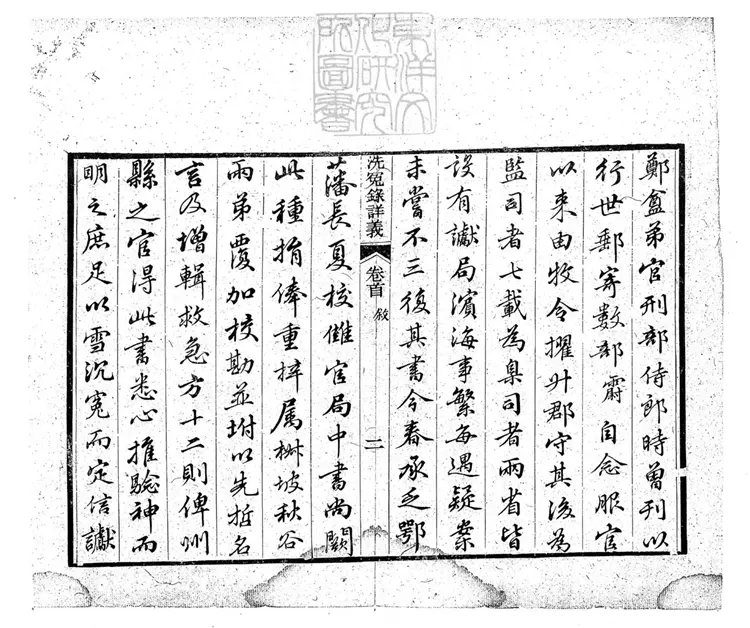 東洋文
化研究
所圖書
鄭盦弟官刑部侍郎時曾刊以
行世郵寄數部霨自念服官
以來由牧令擢升郡守其後為
監司者七載為臬司者兩省皆
設有讞局濱海事繁每遇疑案
未嘗不三復其書今春承乏鄂
洗冤錄詳義 卷首 敘 二
藩長夏校讎官局中書尚闕
此種捐俸重梓属樹坡秋谷
兩弟覆加校勘並坿以先哲名
言及增輯救急方十二則俾州
縣之官得此書悉心推驗神而
明之庶足以雪沉冤而定信讞